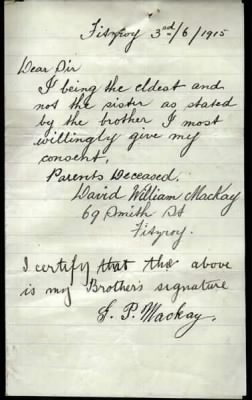 Fitzroy 3rd/6/1915
Dear Sir
I being the eldest and
not the sister as stated
by the brother I most
willingly give my
consent.
Parents Deceased.
David William Mackay
69 Smith St
Fitzroy.
I certify that the above
is my Brother's signature
J. P. Mackay.